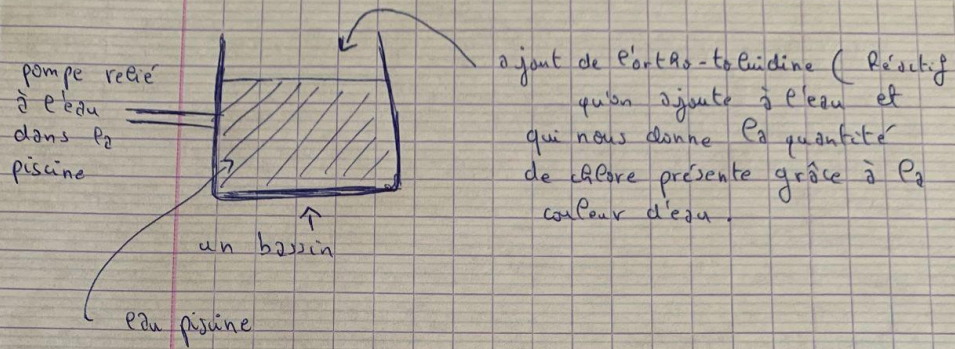 pompe relié
à l'eau
dans la
piscine
ajout de l'ortho-toluidine ( Réactif
qu'on ajoute à l'eau et
qui nous donne la quantité
de chlore présente grâce à la
couleur d'eau.
un bassin
eau piscine